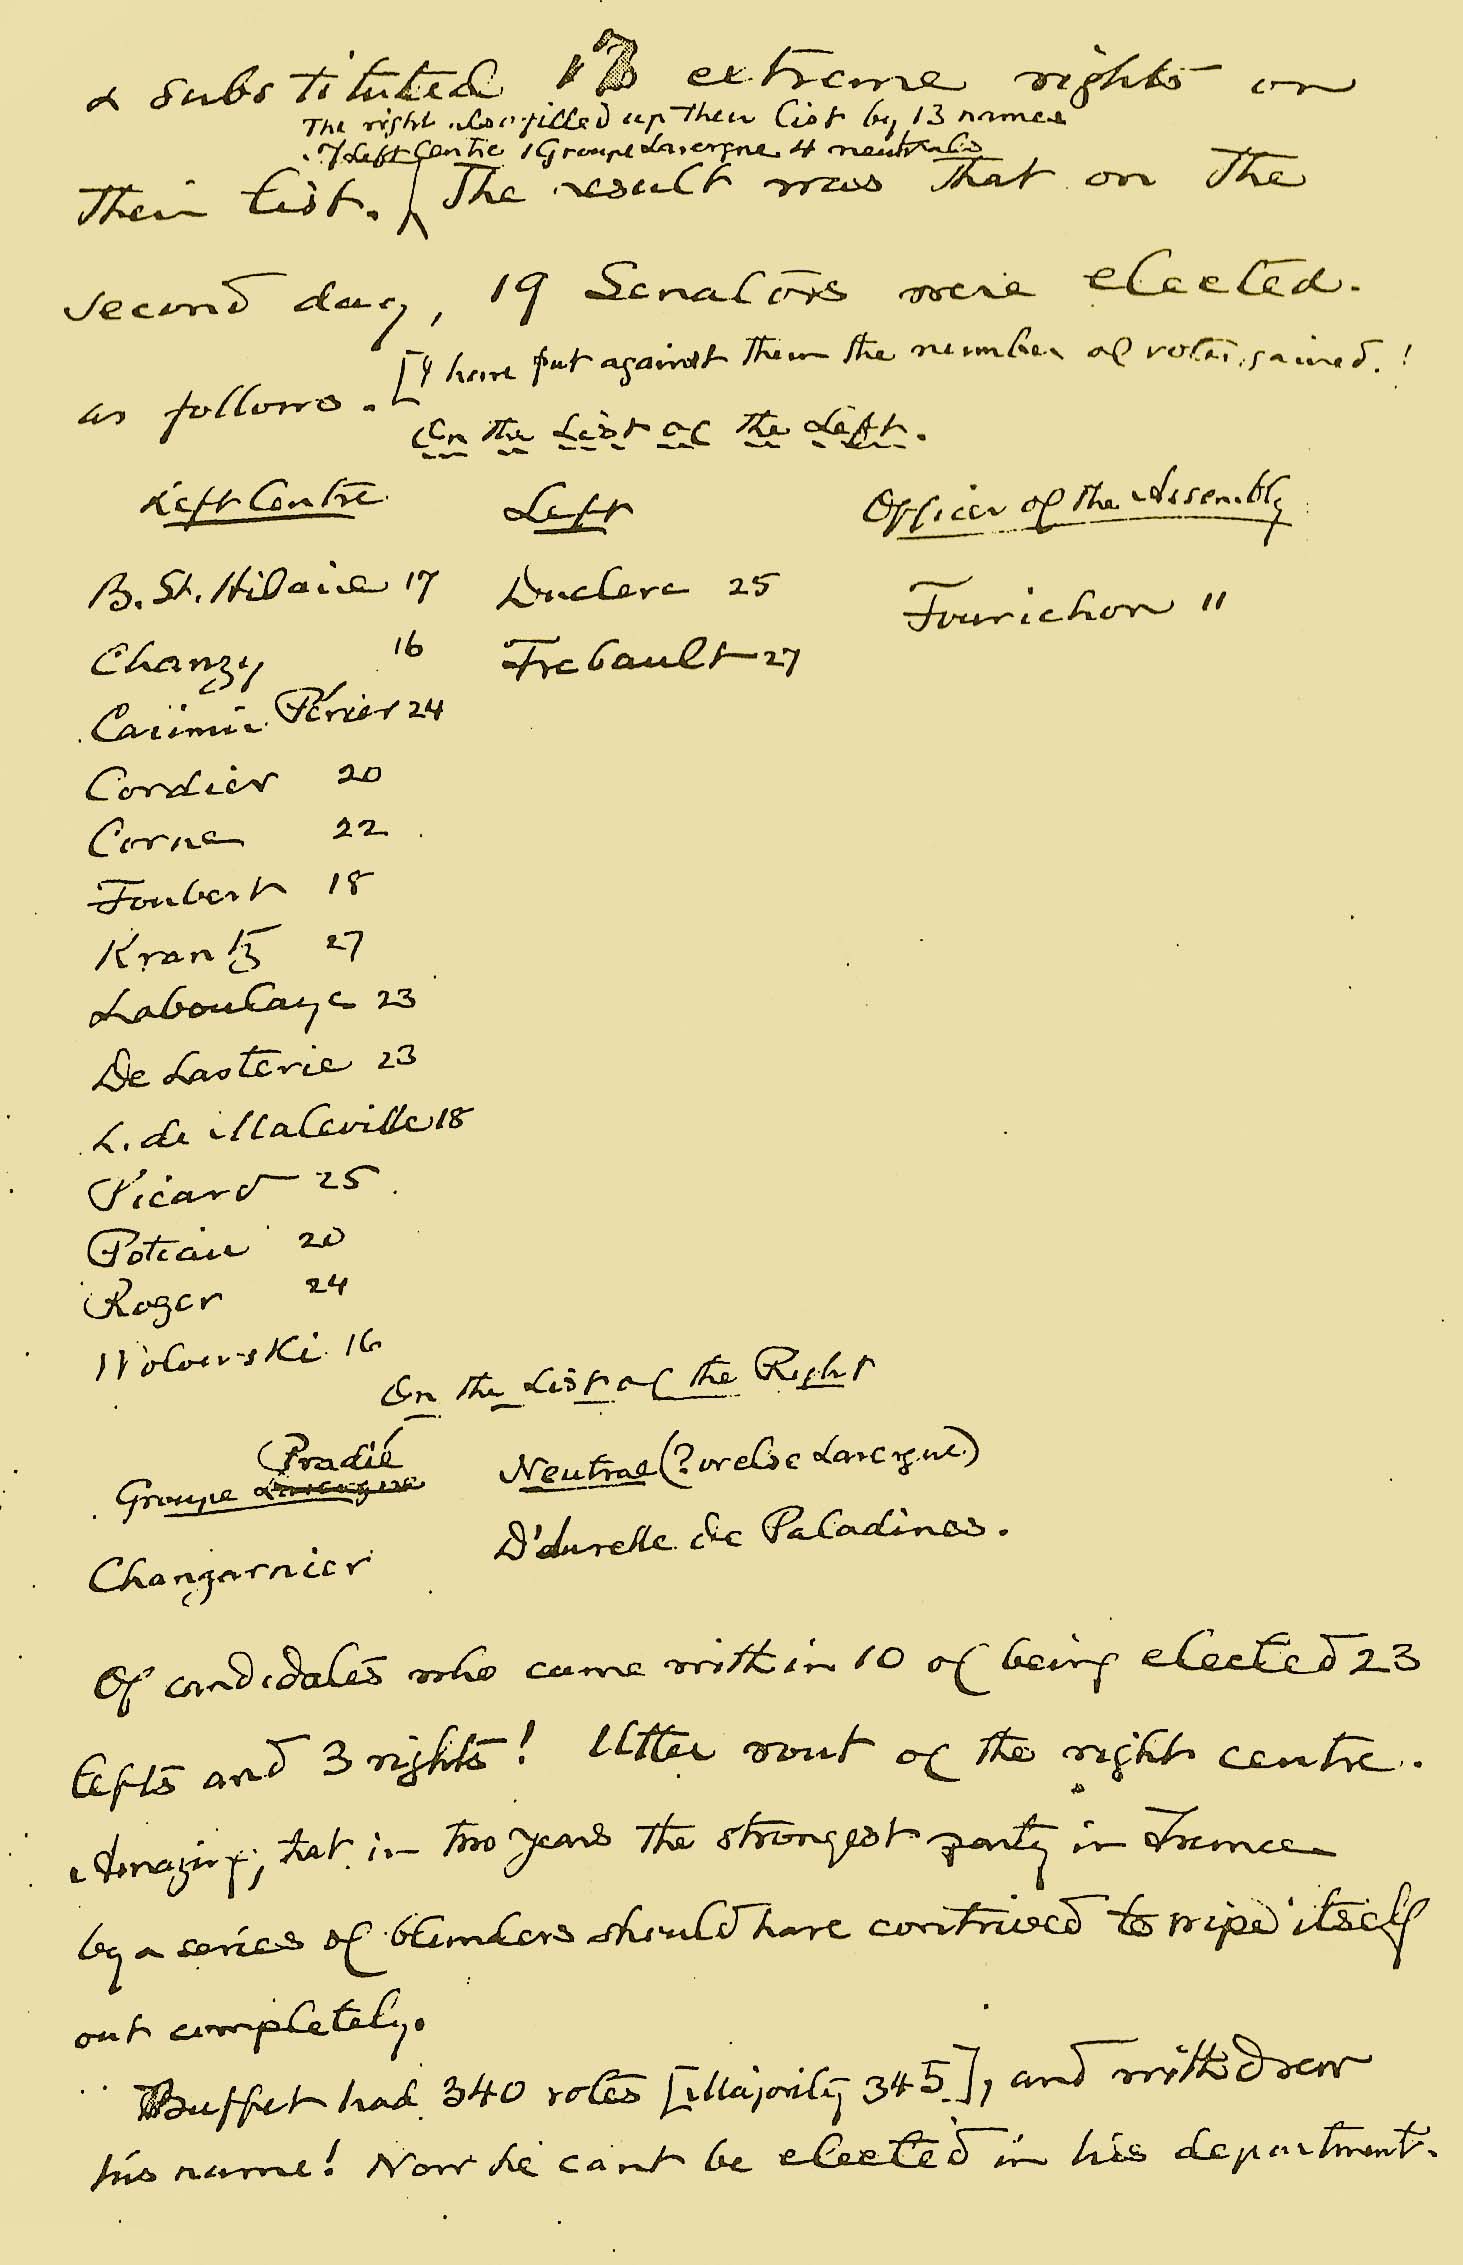 & substituted 17 extreme rights on
The right also filled up their list by 13 names
7 Left Centre 1 Groupe Lavergne 4 neutrals
their list. The result was that on the
second day, 19 Senators were elected.
as follows. [I have put against them the number of votes gained.!
On the List of the Left.
Left Centre Left Officer of the Assembly
B. St. Hilaire 17 Duclerc 25 Fourichon 11
Chanzy 16 Frebault 27
Casimir Périer 24
Cordier 20
Corne 22
Foubert 18
Krantz 27
Laboulaye 23
De Lasterie 23
L. de Maleville 18
Picard 25
Potiau 20
Roger 24
Wolowski 16
On the List of the Right
Pradié
Groupe Lavergne Neutral (? or else Lavergne)
Changarnier D'Aurelle de Paladines.
Of candidates who came within 10 of being elected 23
lefts and 3 rights! Utter rout of the right centre.
Amazing, that in two years the strongest party in France
by a series of blunders should have contrived to wipe itself
out completely.
Buffet had 340 votes [Majority 345], and withdrew
his name! Now he cant be elected in his department.